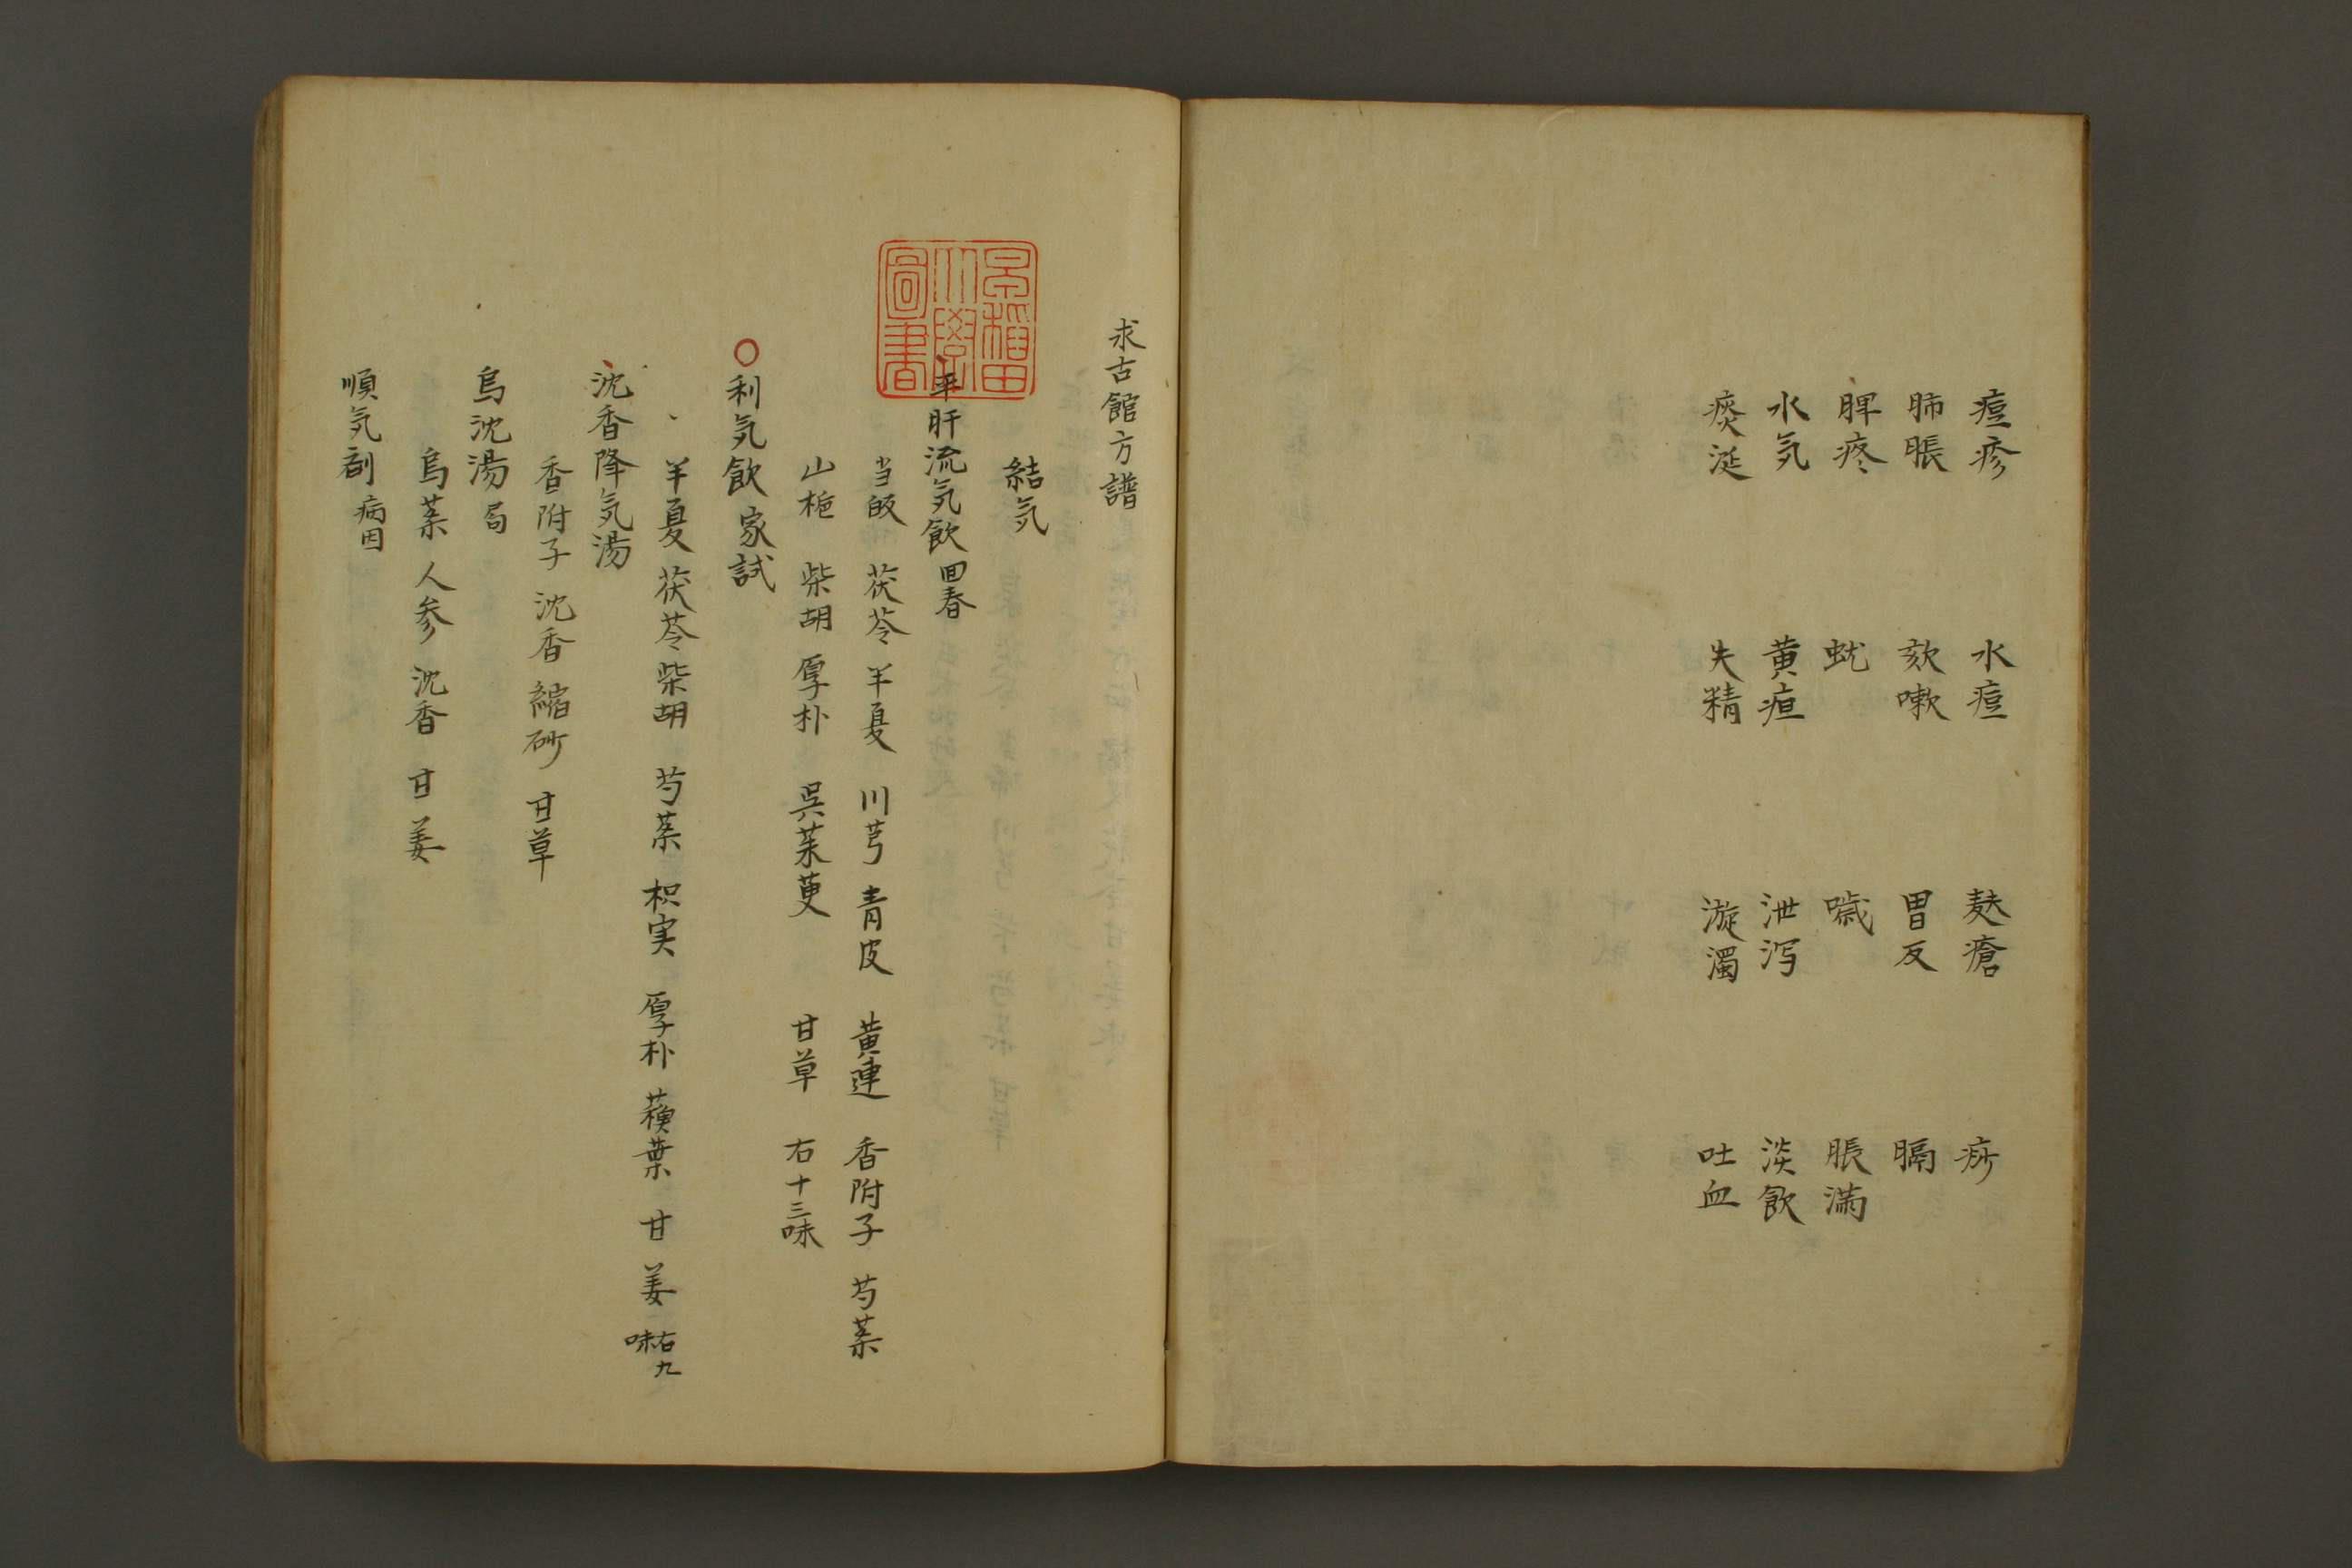 痘疹 水痘 麩瘡 痧
肺脹 欬嗽 胃反 膈
脾疼 蚘 噦 脹満
水気 黄疸 泄泻 淡飲
痰涎 失精 漩濁 吐血
求古館方譜
早稲田大學圖書
結気
平肝流気飲 回春
当皈 茯苓 半夏 川芎 青皮 黄連 香附子 芍薬
山梔 柴胡 厚朴 呉茱萸 甘草 右十三味
○利気飲 家試
半夏 茯苓 柴胡 芍薬 枳実 厚朴 蘓葉 甘 姜 右九味
沈香降気湯
香附子 沈香 縮砂 甘草
烏沈湯 局
烏薬 人参 沈香 甘 姜
順気剤 病因